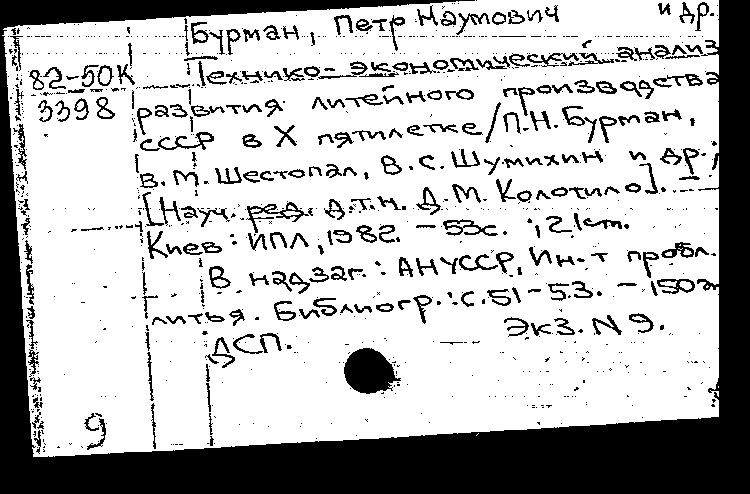 Бурман, Петр Наумович и др.
82-50К Технико-экономический анализ
3398 развития литейного производства
СССР в X пятилетке / П.Н. Бурман,
В.М. Шестопал, В.С. Шумихин и др.;
[Науч. ред. д.т.н. Д.М. Колотило].
Киев: ИПЛ, 1982. - 53с. ; 21см.
В надзаг.: АНУССР, Ин-т пробл.
литья. Библиогр.: с.51-53. - 150э
ДСП. Экз. N 9.
9